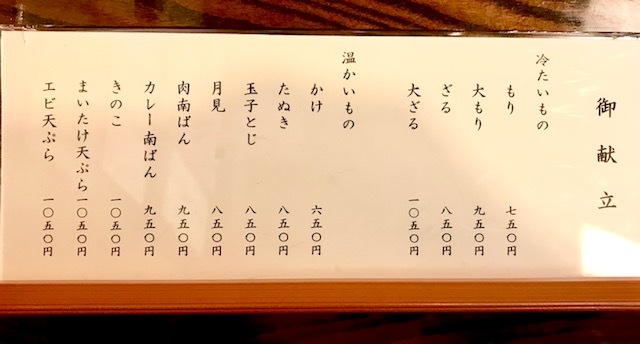 御献立
冷たいもの
もり 七五〇円
大もり 九五〇円
ざる 八五〇円
大ざる 一〇五〇円
温かいもの
かけ 六五〇円
たぬき 八五〇円
玉子とじ 八五〇円
月見 八五〇円
肉南ばん 九五〇円
カレー南ばん 九五〇円
きのこ 一〇五〇円
まいたけ天ぷら 一〇五〇円
エビ天ぷら 一〇五〇円